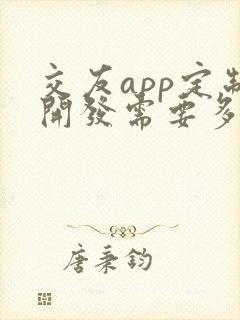 交友app定制
開發需要多
唐秉鈞